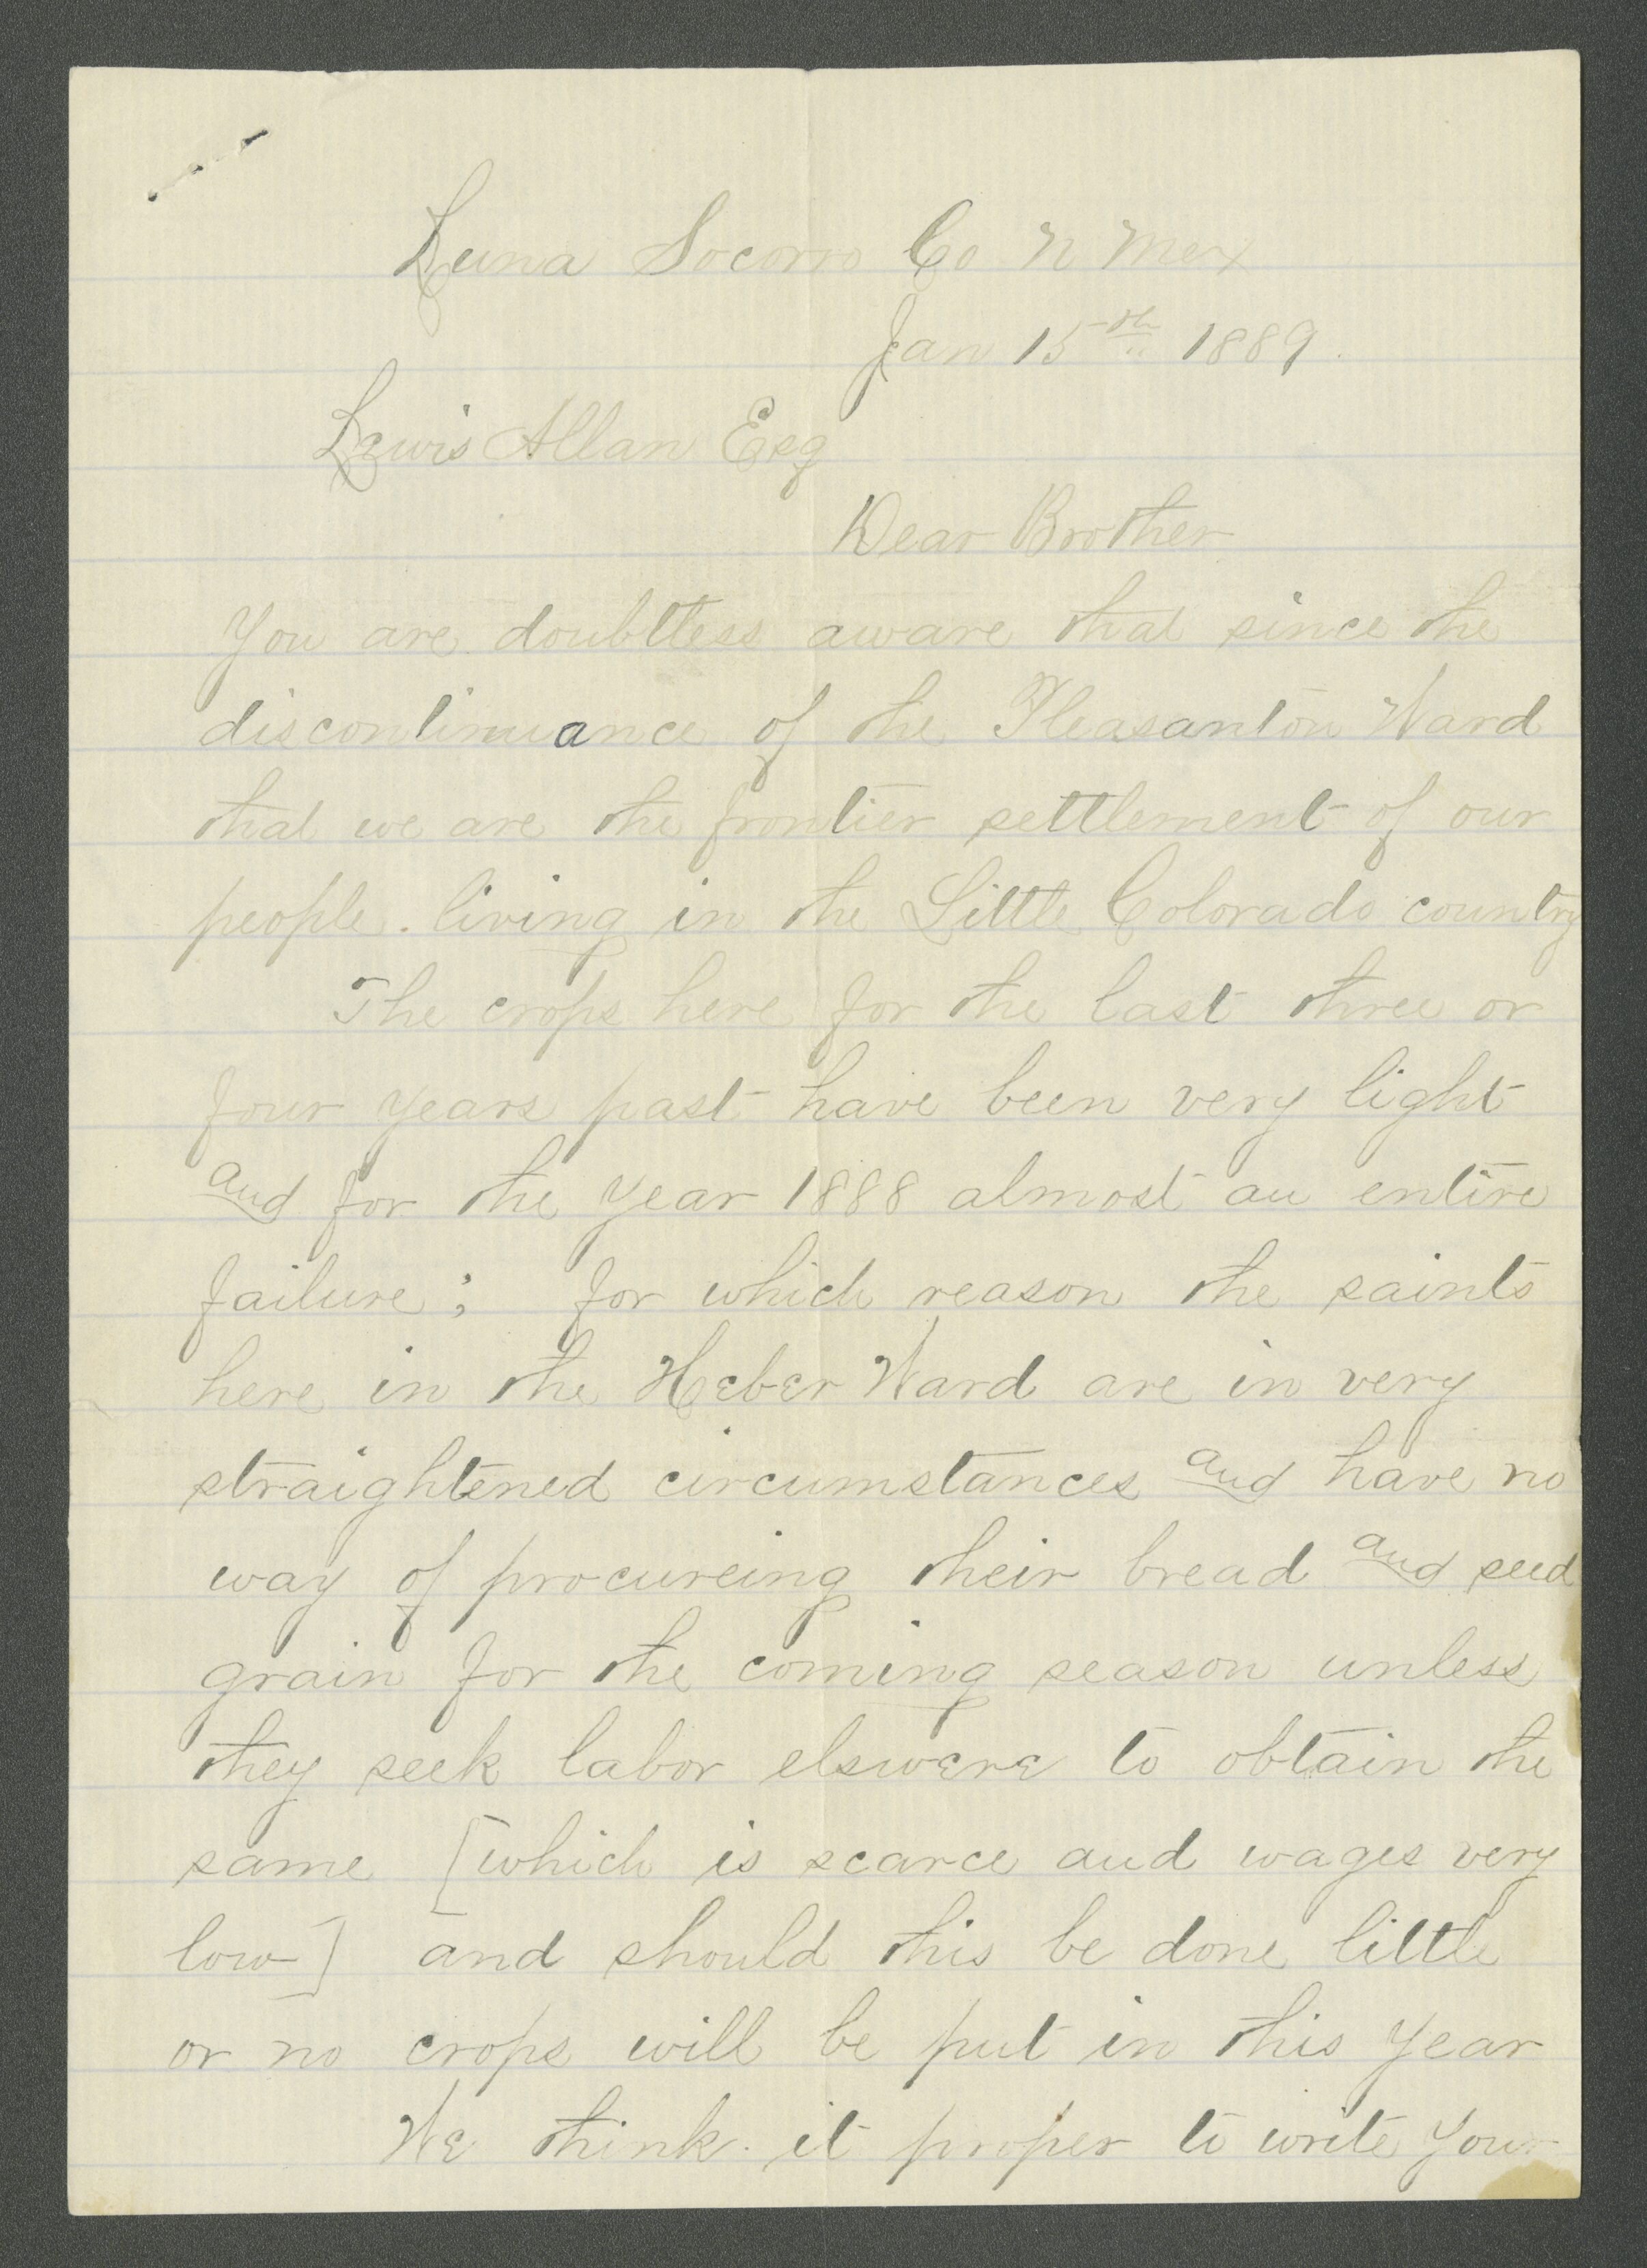 Luna Socorro Co N Mex
Jan 15th 1889.
Lewis Allan Esq
Dear Brother
You are doubtless aware that since the
discontinuance of the Pleasanton Ward
that we are the frontier settlement of our
people. living in the Little Colorado country
The crops here for the last three or
four years past have been very light
and for the year 1888 almost an entire
failure; for which reason the saints
here in the Heber Ward are in very
straightened circumstances and have no
way of procureing their bread and seed
grain for the coming season unless
they seek labor elswere to obtain the
same [which is scarce and wages very
low] and should this be done little
or no crops will be put in this year
We think it proper to write your